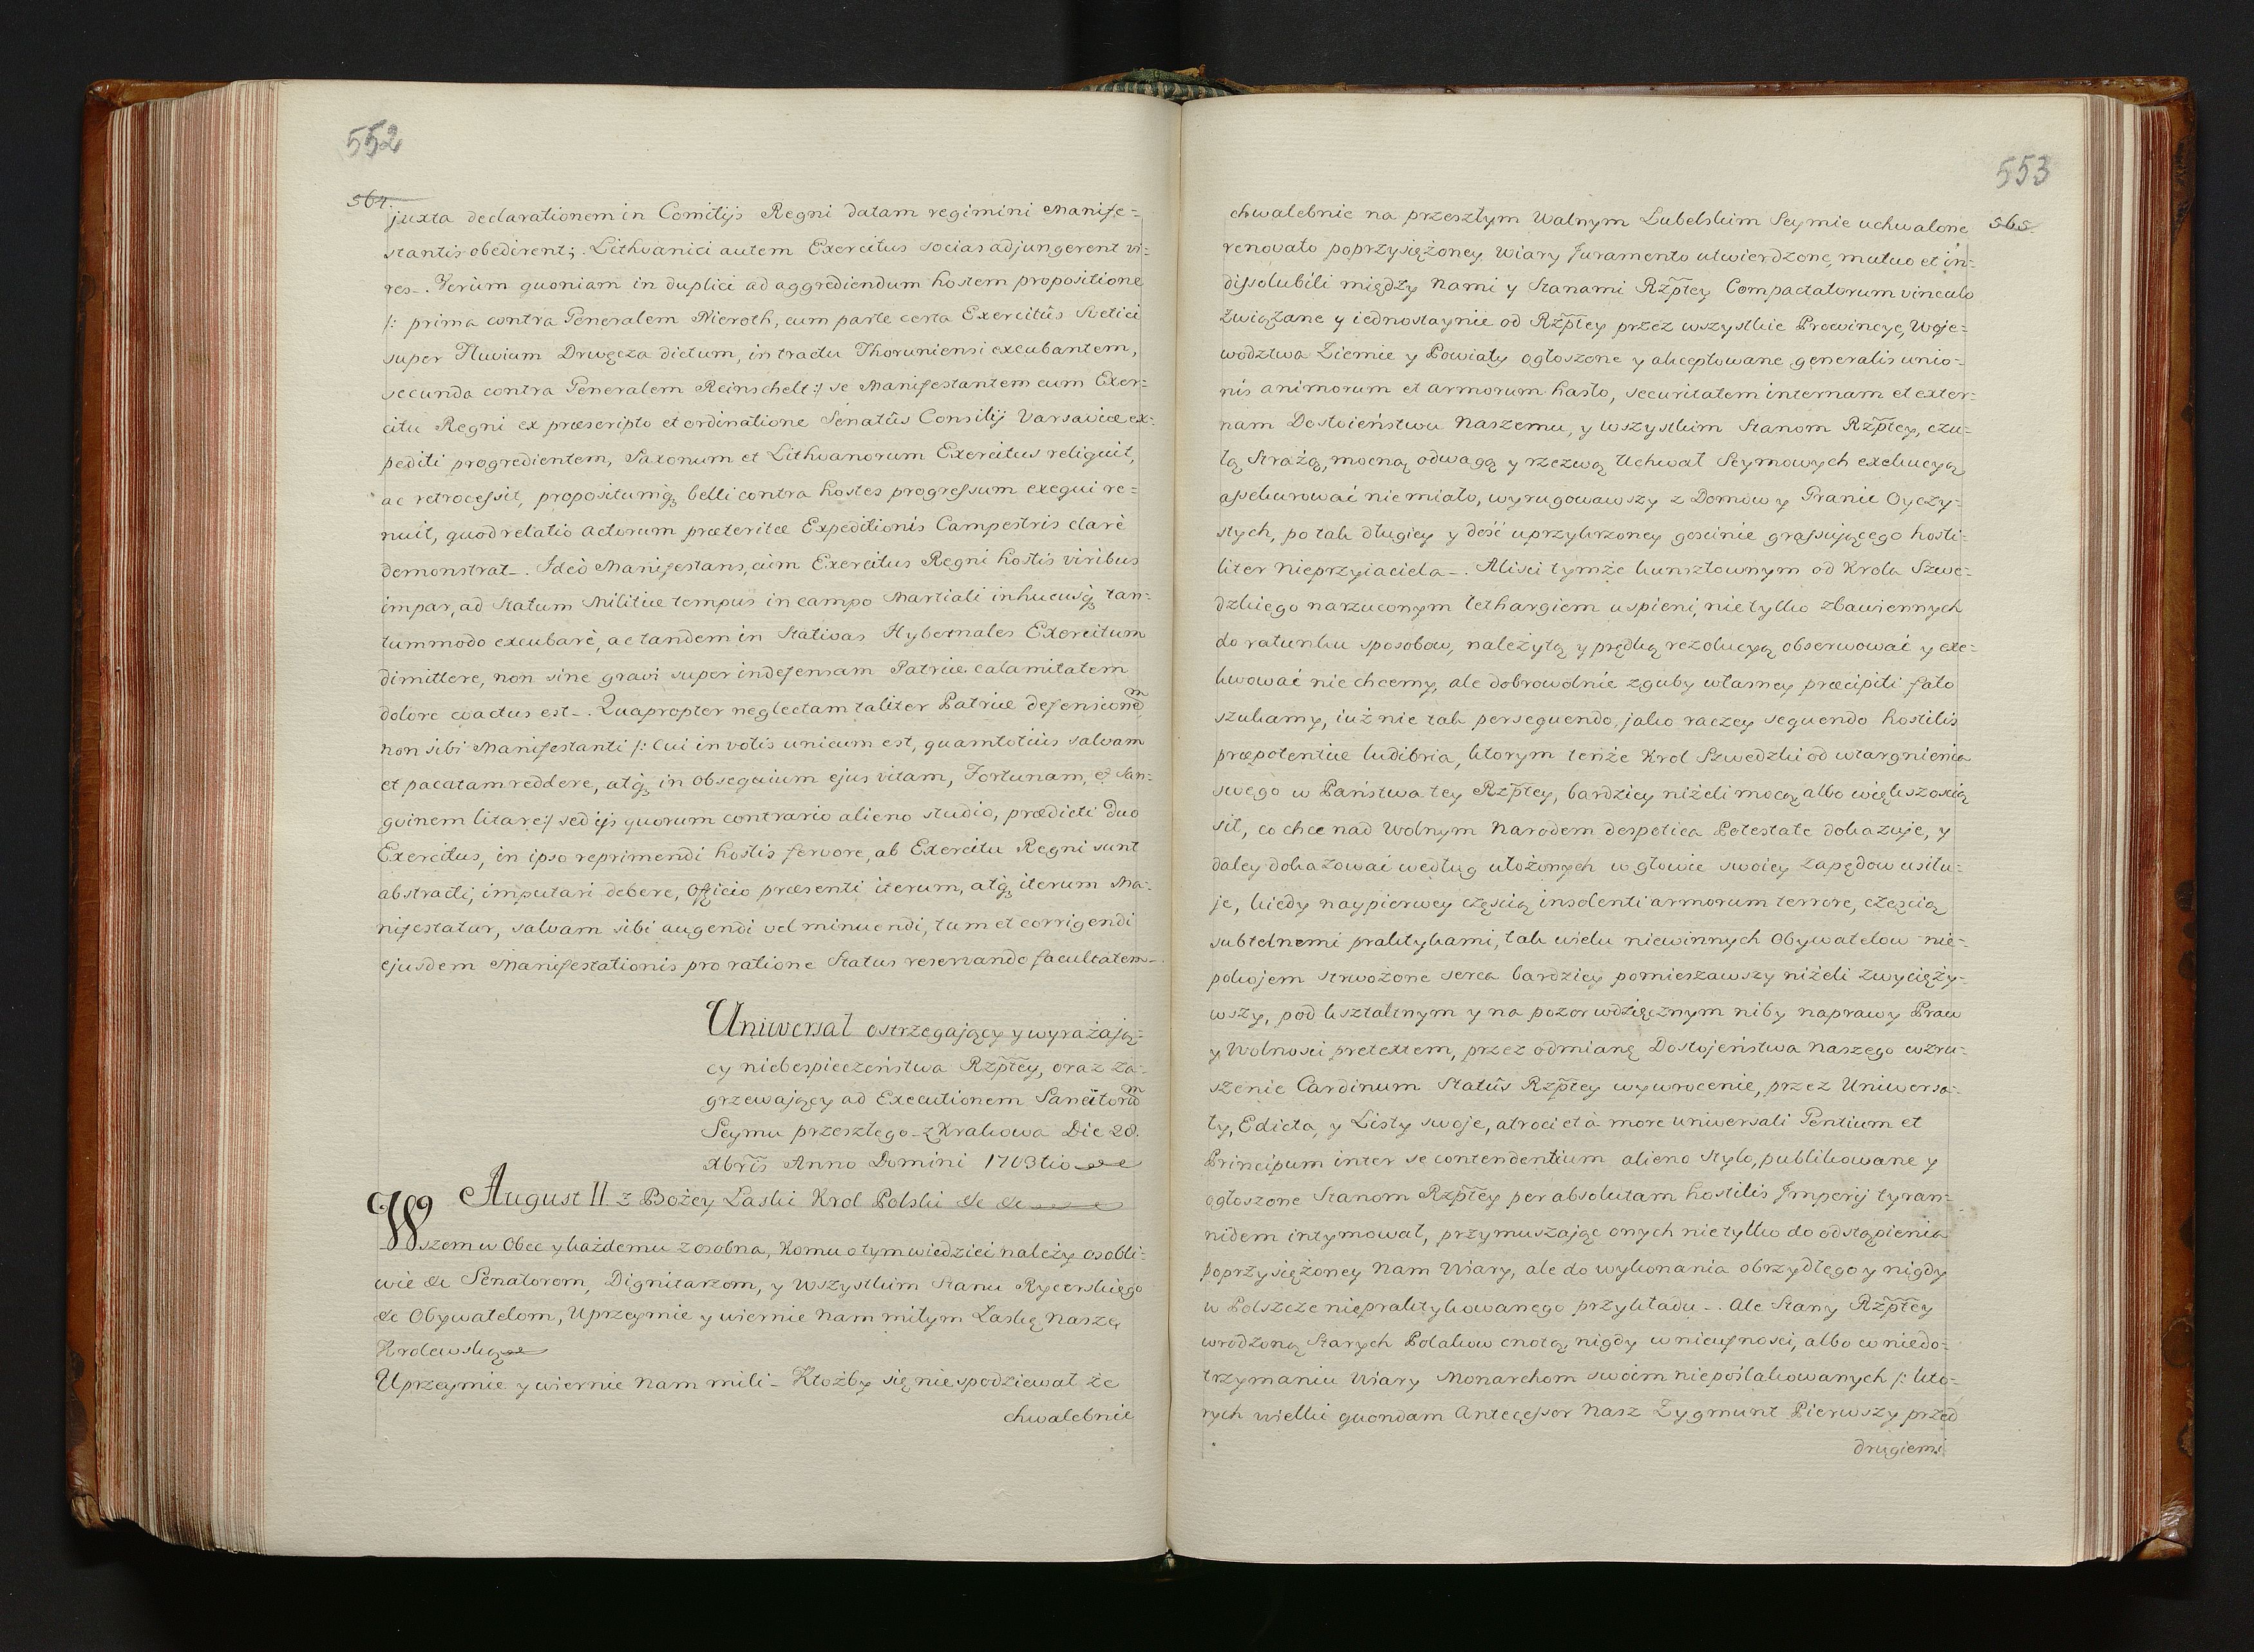 552
564.
juxta declarationem in Comitijs Regni datam regimini Manife=
stantis obedirent; Lithvanici autem Exercitus socias adjungerent vi=
res. Verùm quoniam in duplici ad aggrediendum hostem propositione
/: prima contra Generalem Nieroth, cum parte certa Exercitûs Svetici
super Fluvium Drwęcza dictum, in tractu Thoruniensi excubantem,
secunda contra Generalem Reinschelt :/ se Manifestantem cum Exer=
citu Regni ex præscripto et ordinatione Senatûs Consilij Varsaviæ ex=
pediti progredientem, Saxonum et Lithvanorum Exercitus reliquit,
ac retrocessit, propositumq; belli contra hostes progressum exequi re=
nuit, quod relatio actorum præteritæ Expeditionis Campestris clarè
demonstrat. Ideò Manifestans, cùm Exercitus Regni hostis viribus
impar, ad Statum Militiæ tempus in campo Martiali inhucusq; tan=
tummodo excubarè, ac tandem in Stativas Hybernales Exercitum
dimittere, non sine gravi super indefensam Patriæ calamitatem
dolore coactus est. Quapropter neglectam taliter Patriæ defensionem
non sibi Manifestanti /: Cui in votis unicum est, quamtotiùs salvam
et pacatam reddere, atq; in obsequium ejus vitam, Fortunam, et San=
gvinem litare :/ sed ijs quorum contrario alieno studio, prædicti duo
Exercitus, in ipso reprimendi hostis fervore, ab Exercitu Regni sunt
abstracti, imputari debere, Officio præsenti iterum, atq; iterum Ma=
nifestatur, salvam sibi augendi vel minuendi, tum et corrigendi
ejusdem Manifestationis pro ratione Status reservando facultatem.
Uniwersał ostrzegający y wyrażają=
cy niebespieczeństwa Rzptey, oraz za=
grzewający ad Executionem Sancitorum
Seymu przeszłego z Krakowa Die 28.
Xbris Anno Domini 1703tio
August II. z Bożey Łaski Krol Polski &c &c
Wszem w Obec y każdemu z osobna, Komu o tym wiedzieć należy osobli=
wie &c Senatorom, Dignitarzom, y Wszystkim Stanu Rycerskiego
&c Obywatelom, Uprzeymie y wiernie Nam miłym Łaskę Naszę
Krolewską
Uprzeymie y wiernie Nam mili. Ktożby się nie spodziewał że
chwalebnie
553
565.
chwalebnie na przeszłym Walnym Lubelskim Seymie uchwalone
renovato poprzysiężoney Wiary Juramento utwierdzone, mutuo et in=
dissolubili między Nami y Stanami Rzptey Compactatorum vinculo
związane y iednostaynie od Rzptey przez wszystkie Prowincye, Woje=
wodztwa Ziemie y Powiaty ogłoszone y akceptowane, generalis unio=
nis animorum et armorum hasło, securitatem internam et exter=
nam Dostoieństwu Naszemu, y wszystkim Stanom Rzptey, czu=
łą Strażą, mocną odwagą y rzezwą Uchwał Seymowych exekucyą
assekurować nie miało, wyrugowawszy z Domow y Granic Oyczy=
stych, po tak długiey y dość uprzykrzoney goscinie grassującego hosti=
liter Nieprzyiaciela. Alisci tymże kunsztownym od Krola Szwe=
dzkiego narzuconym lethargiem uspieni, nie tylko zbawiennych
do ratunku sposobow, należytą y prędką rezolucyą obserwować y exe=
kwować nie chcemy, ale dobrowolnie zguby własney præcipiti fato
szukamy, iuż nie tak persequendo, jako raczey sequendo hostilis
præpotentiæ ludibria, ktorym tenże Krol Szwedzki od wtargnienia
swego w Państwa tey Rzptey, bardziey niżeli mocą albo większoscią
sił, co chce nad Wolnym Narodem despotica Potestate dokazuje, y
daley dokazować według ułożonych w głowie swoiey zapędow usiłu=
je, kiedy naypierwey częscią insolenti armorum terrore, częscią
subtelnemi praktykami, tak wielu niewinnych Obywatelow nie=
pokojem strwożone serca bardziey pomieszawszy niżeli zwycięży=
wszy, pod kształtnym y na pozor wdzięcznym niby naprawy Praw
y Wolnosci pretextem, przez odmianę Dostojeństwa Naszego wzru=
szenie Cardinum Statûs Rzptey wywrocenie, przez Uniwersa=
ły, Edicta, y Listy swoje, atroci et à more universali Gentium et
Principum inter se contendentium alieno Stylo, publikowane y
ogłoszone Stanom Rzptey per absolutam hostilis Imperij tyran=
nidem intymował, przymuszając onych nie tylko do odstąpienia
poprzysiężoney Nam Wiary, ale do wykonania obrzydłego y nigdy
w Polszcze niepraktykowanego przykładu. Ale Stany Rzptey
wrodzoną Starych Polakow cnotą nigdy w nieufnosci, albo w niedo=
trzymaniu Wiary Monarchom swoim niepoślakowanych /: kto=
rych wielki quondam Antecessor Nasz Zygmunt Pierwszy przed
drugiemi